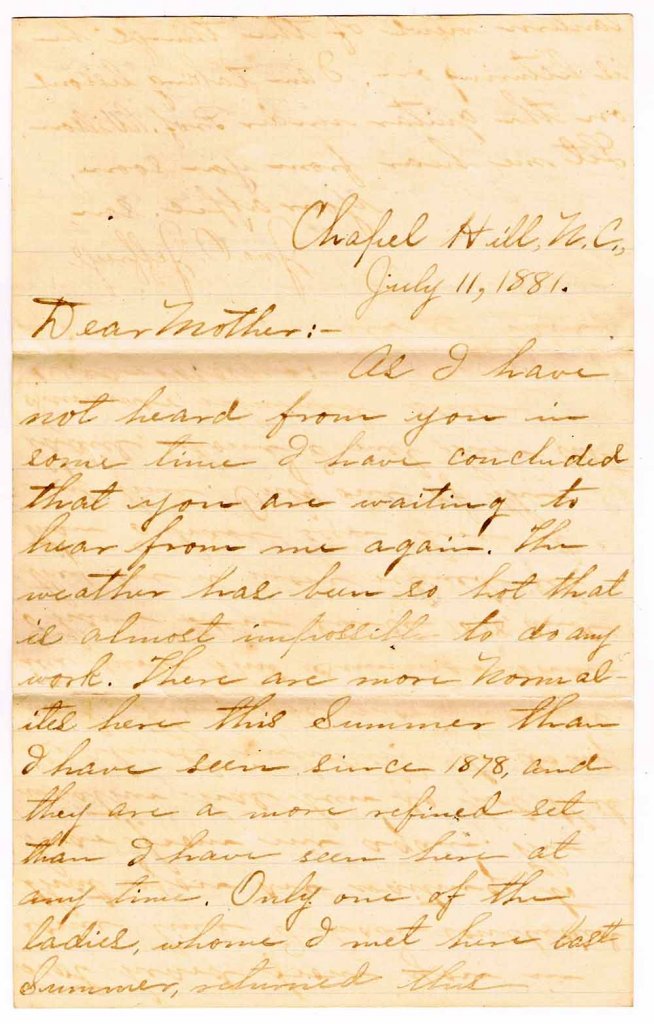 Chapel Hill, N.C.,
July 11, 1881.
Dear Mother:-
As I have
not heard from you in
some time I have concluded
that you are waiting to
hear from me again. The
weather has been so hot that
is almost impossible to do any
work. There are more Normal-
ites here this Summer than
I have seen since 1878, and
they are a more refined set
than I have seen here at
any time. Only one of the
ladies, whome I met here last
Summer, returned this